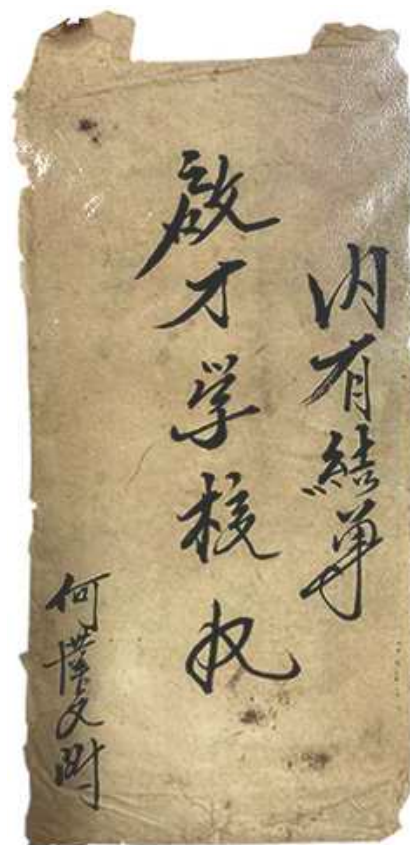 內有結单
啟才学校收
何漢文附